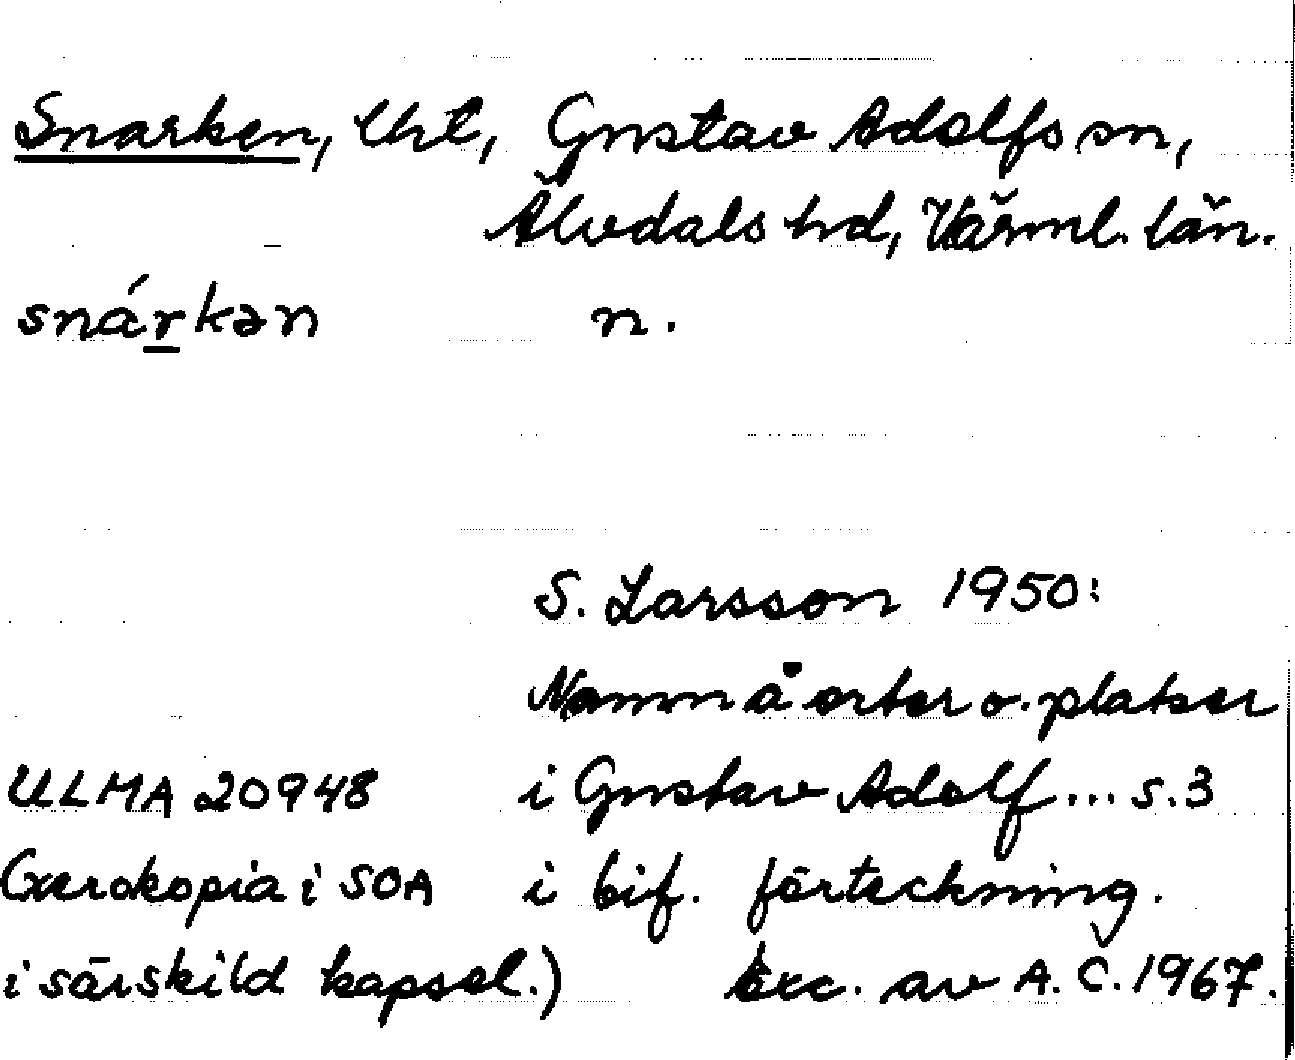 Snarken, Uht, Gustav Adolfs sn,
Älvdals hd, Värml. län.
snárkən n.
S. Larsson 1950:
Namn å orter o. platser
ULMA 20948 i Gustav Adolf... s.3
(Xerokopia i SOA i bif. förteckning.
i särskild kapsel.) Exc. av A. C. 1967.